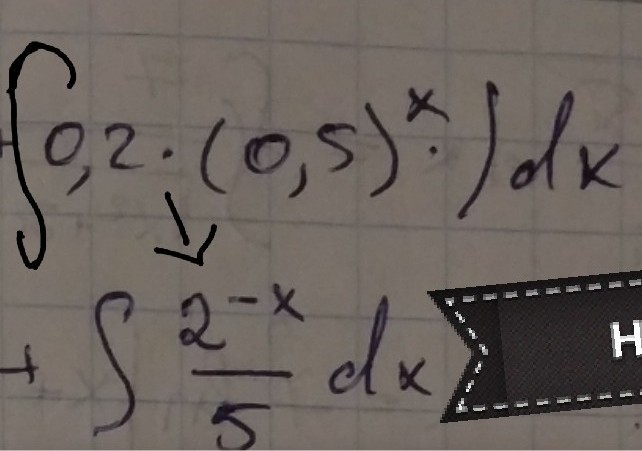 ∫ 0,2 · (0,5)^x · ) dx
+ ∫ 2^-x / 5 dx
H